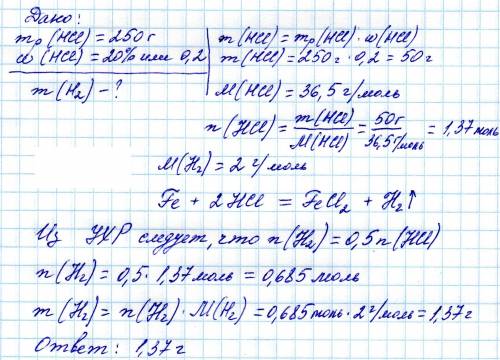 Дано:
mр(HCl) = 250 г
ω(HCl) = 20% или 0,2
m(H₂) - ?
m(HCl) = mр(HCl) · ω(HCl)
m(HCl) = 250 г · 0,2 = 50 г
M(HCl) = 36,5 г/моль
n(HCl) = m(HCl)/M(HCl) = 50 г/36,5 г/моль = 1,37 моль
M(H₂) = 2 г/моль
Fe + 2HCl = FeCl₂ + H₂↑
Из УХР следует, что n(H₂) = 0,5 n(HCl)
n(H₂) = 0,5 · 1,37 моль = 0,685 моль
m(H₂) = n(H₂) · M(H₂) = 0,685 моль · 2 г/моль = 1,37 г
Ответ: 1,37 г